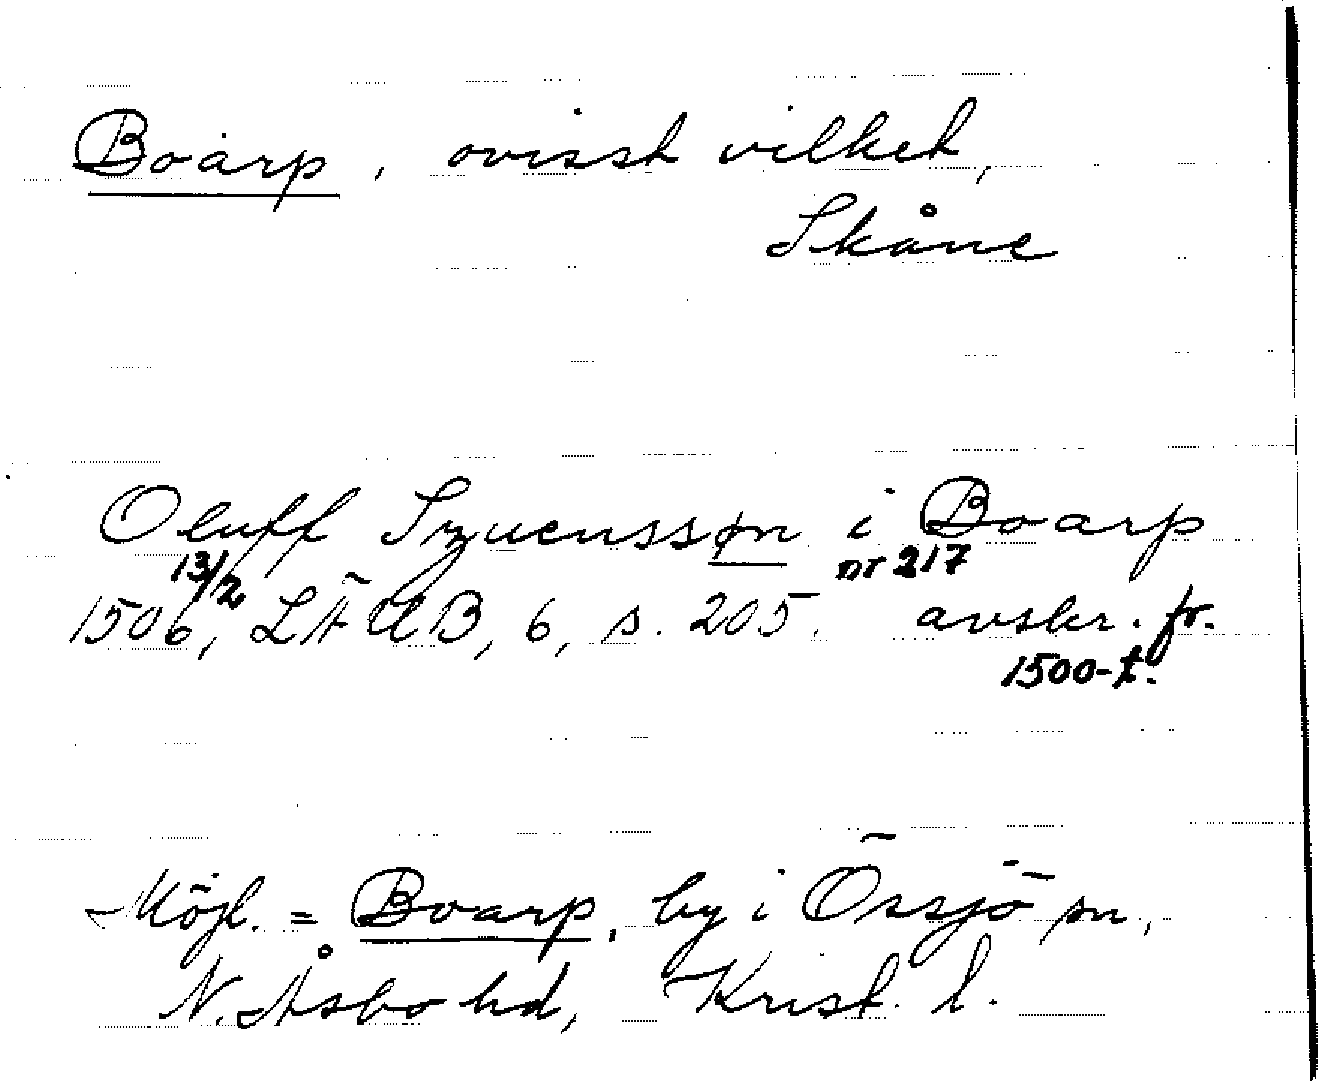 Boarp, ovisst vilket,
Skåne
Oluff Szuensson i Boarp
13/2 nr 217
1506, LÄUB, 6, s. 205. avskr. fr.
1500-t.
Möjl. = Boarp, by i Össjö sn,
N. Åsbo hd, Krist. l.